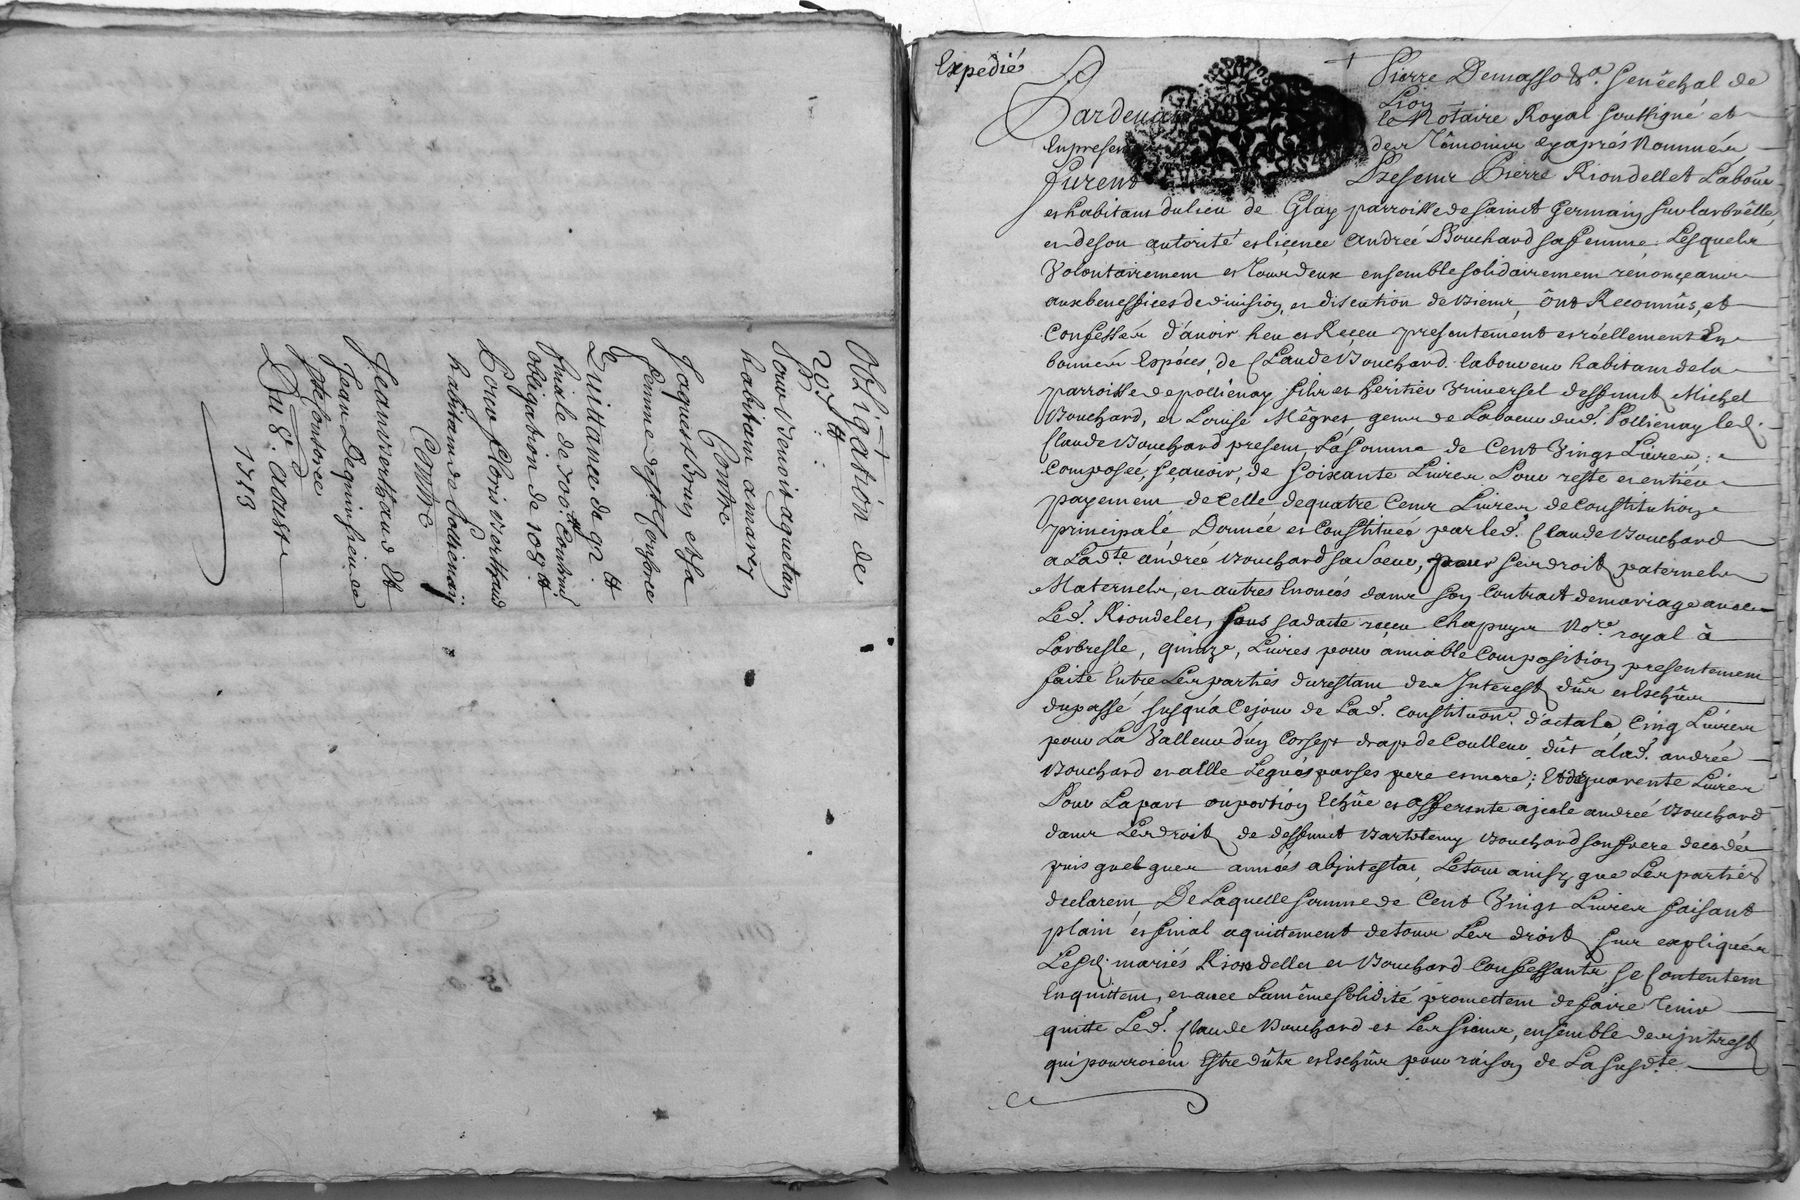 Obligation de
207 ₶
Pour Benoist aguetan
habitan a marcy
Contre
Jaques Brun et sa
femme de ste Consorce
Quittance de 92 ₶
obligation de 108 ₶
Pour floris Berthaud
habitan de Pollienay
Contre
Jean Berthaud Et
Jean Dequinsieu de
ste Consorce
Du 8e. aoust
1713
Expedié
Pierre Demasso &a. senéchal de
Lion
Pardevant le Notaire Royal soussigné et
En presence des Têmoins cyaprés Nommés
furent Presens Pierre Riondellet Labour
et habitant du lieu de Glay parroisse de sainct Germain sur larbrêlle,
et de son autorité et licence andreé Bouchard sa femme. Lesquels
Volontairement et tous deux ensemble solidairement rénonçeans
aux benefices de division, et discution de biens, ônt Reconnûs, et
Confessés d'avoir heu et Reçeu presentement et réellement En
bonnes Espéces, de Claude Bouchard laboureur habitant de la
parroisse de pollienay filz et héritier Vniversel deffunt Michel
Bouchard, et Louise Mêgret, gens de Labeur dud. Pollienay led.
Claude Bouchard present, La somme de Cent Vingt Livres,
Composeé, sçavoir, de soixante Livres Pour reste et entier
payement de celle de quatre Cent Livres de Constitution
principale Donnee et Constitueé par led. Claude Bouchard
a Ladte. andreé Bouchard sa soeur, pour ses droits paternels
Maternels, et autres Enoncés dans son Contract de mariage avec
Led. Riondelet, sous sa datte reçeu Chapuys Nore. royal à
Larbresle, quinze, Livres pour amiable Composition presentement
faite Entre Les parties du restant des Interest dûs et Escheus
du passé jusqu'à Cejour de Lad. Constituon. dotale Cinq Livres
pour La Valleur d'un Corsept drap de Coulleur dût à lad. andreé
Bouchard et a Elle Legués par ses pere et mere; Et de quarente Livres
Pour La part ou portion Echûe et afferente a jcele andreé Bouchard
dans Les droits de deffunct Barthelemy Bouchard son frere decedé de
puis quelques annéés abjntestat, Le tout ainsy que Les partiés
declarent, De Laquelle somme de Cent Vingt Livres faisant
plain et final aquittement de tous Les droits sus expliqués
Lesd. mariés Riondellet et Bouchard Confessants se Contentent
En quittent, et avec La même solidité promettent de faire tenir
quitte Led. Claude Bouchard et Les siens, ensemble des jntrests
qui pourroient Estre dûts et Escheus pour raison de La susdte.